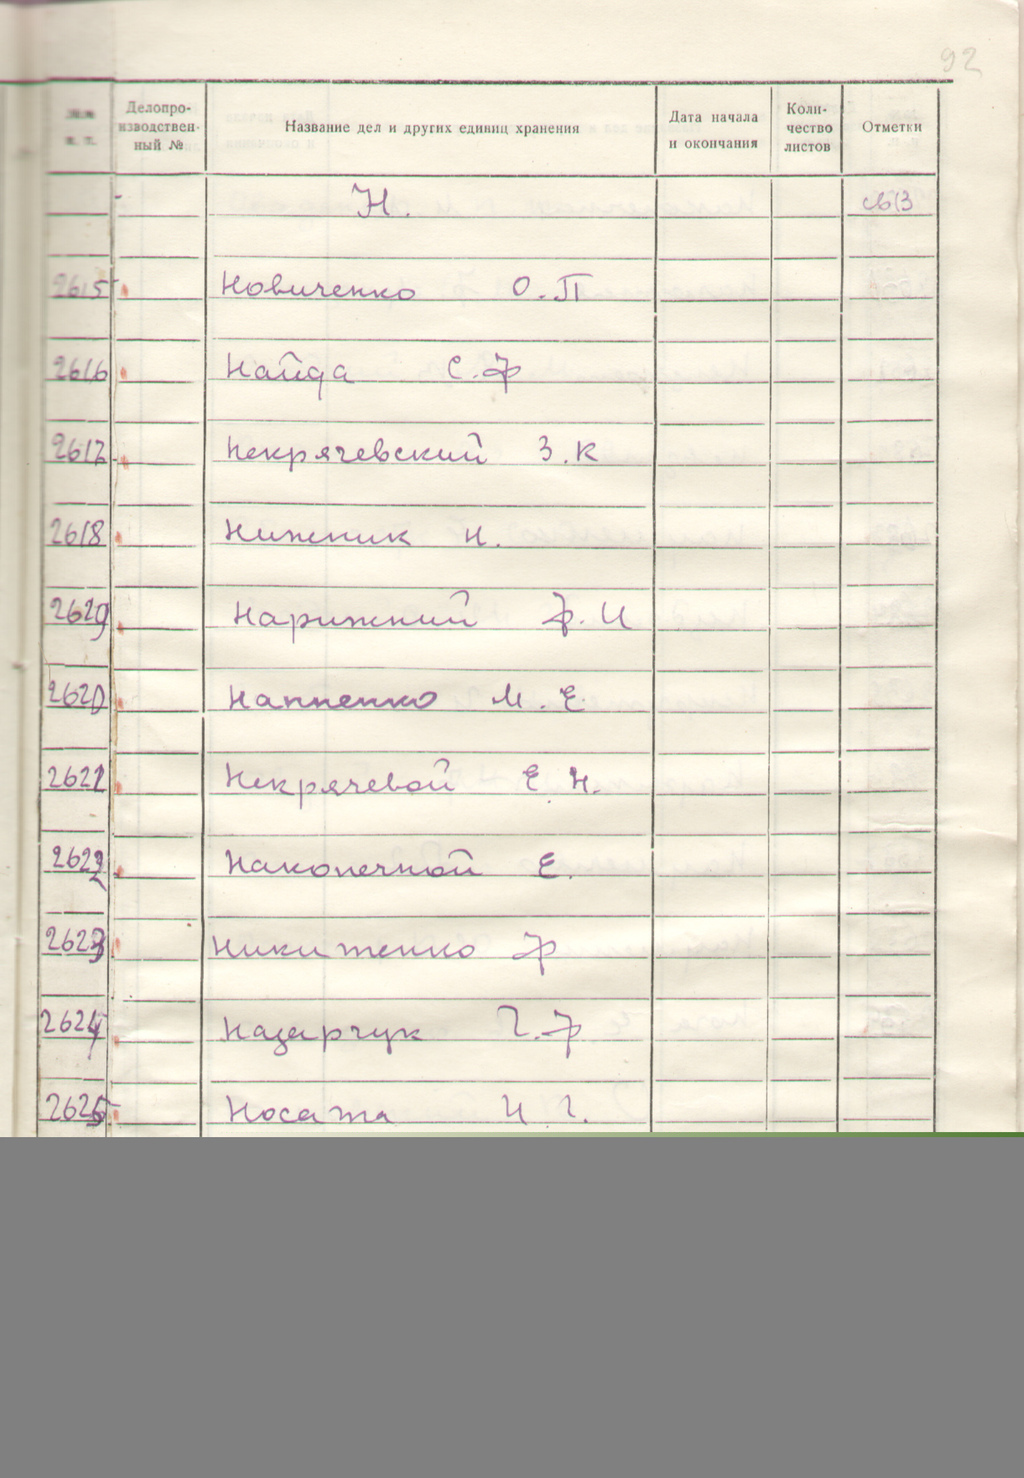 92
№№ п. п. Делопро-изводствен-ный № Название дел и других единиц хранения Дата начала и окончания Коли-чество листов Отметки
Н. св13
2615 Новиченко О.П
2616 Найда С.Ф
2617 Некрячевский З.К
2618 Нижник Н.
2619 Нарижний Ф.И
2620 Наппенко М.Е.
2621 Некрячевой Е.Н.
2622 Наконечной Е.
2623 Никитенко Ф
2624 Назарчук Г.Ф
2625 Носата Н.Г.